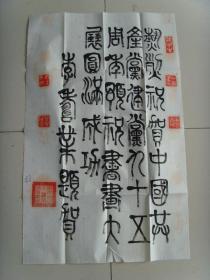 熱烈祝賀中國共
產黨建黨九十五
周年預祝書畫大
展圓滿成功
李 業題賀